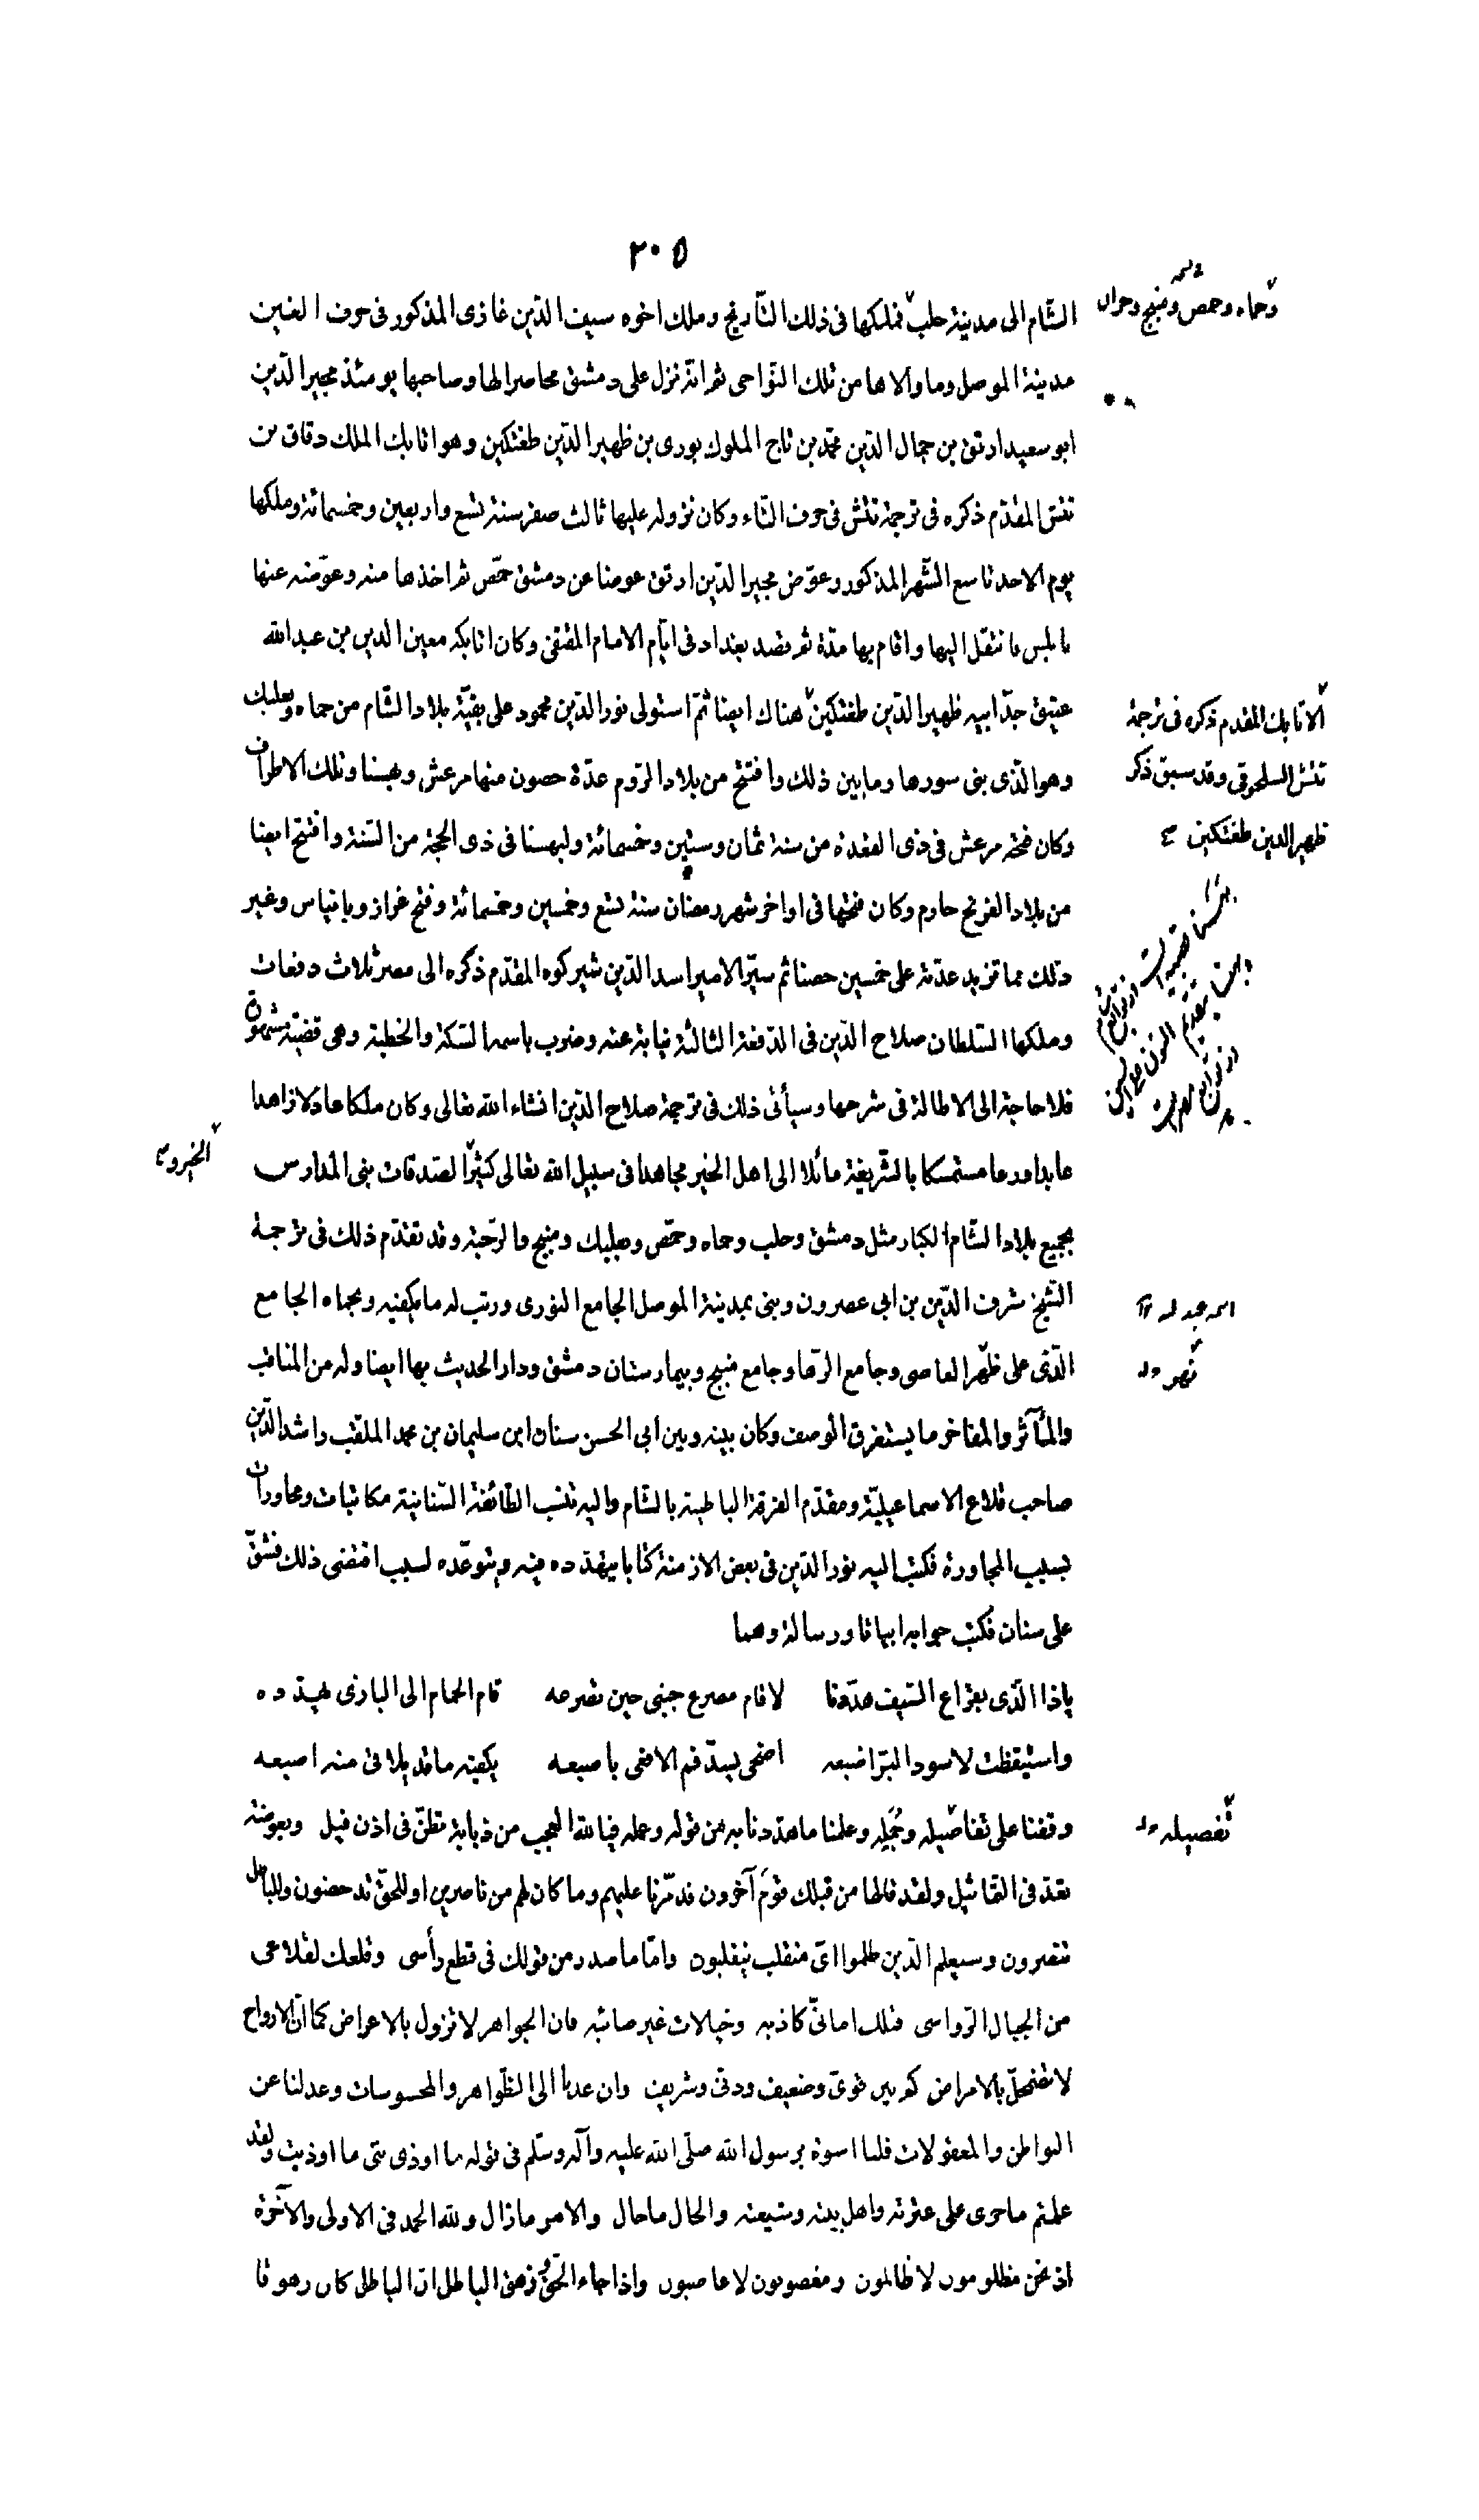 ٢٠٥
الشّام الى مدينة حلب فملكها فى ذلك التّاريخ وملك اخوه سيف الدّين غازى المذكور فى حرف الغين
وحماه وحمص ومنبج وحران
مدينة الموصل وما والاها من تلك النّواحى ثم انّه نزل على دمشق محاصرا لها وصاحبها يومئذ مجير الدّين
ابو سعيد ارتق بن جمال الدّين محمّد بن تاج الملوك بورى بن ظهير الدّين طغتكين وهو اتابك الملك دقاق بن
تتش المقدّم ذكره فى ترجمة تتش فى حرف التّاء وكان نزوله عليها ثالث صفر سنة تسع واربعين وخمسمائة وملكها
يوم الاحد تاسع الشّهر المذكور وعوّض مجير الدّين ارتق عوضا عن دمشق حمّص ثم اخذها منه وعوّضه عنها
بالس فانتقل اليها واقام بها مدّة ثم قصد بغداد فى ايّام الامام المقتفى وكان اتابكه معين الدين بن عبد الله
عتيق جدّ ابيه ظهير الدّين طغتكين هناك ايضا ثمّ استولى نور الدّين محمود على بقيّة بلاد الشّام من حماه وبعلبك
الاتابك المقدم ذكره فى ترجمة
تتش السلجوقى وقد سبق ذكر
ظهير الدين طغتكين
وهو الّذى بنى سورها وما بين ذلك وافتتح من بلاد الرّوم عدّة حصون منها مرعش وبهسنا وتلك الاطراف
وكان فتحه مرعش فى ذى القعدة من سنة ثمان وستّين وخمسمائة ولبهسنا فى ذى الحجّة من السّنة وافتتح ايضا
من بلاد الفرنج حارم وكان فتحها فى اواخر شهر رمضان سنة تسع وخمسين وخمسمائة وفتح غراز وبانياس وغير
ذلك مما تزيد عدّته على خمسين حصنا ثم سيّر الامير اسد الدّين شيركوه المقدّم ذكره الى مصر ثلاث دفعات
وملكها السّلطان صلاح الدّين فى الدّفعة الثالثة نيابة عنه وضرب باسمه السّكة والخطبة وهى قضيّة مشهورة
فلا حاجة الى الاطالة فى شرحها وسيأتى ذلك فى ترجمة صلاح الدّين انشاء الله تعالى وكان ملكا عادلا زاهدا
عابدا ورعا مستمسكا بالشّريعة مائلا الى اهل الخير مجاهدا فى سبيل الله تعالى كثيرا لصّدقات بنى المدارس
الخير و
بجميع بلاد الشّام الكبار مثل دمشق وحلب وحماه وحمّص وبعلبك ومنبج والرّحبة وقد تقدّم ذلك فى ترجمة
الشّيخ شرف الدّين بن ابى عصرون وبنى بمدينة الموصل الجامع النورى ورتب له ما يكفيه وبحماه الجامع
الّذى على ظهر العاصى وجامع الرّها وجامع منبج وبيمارستان دمشق ودار الحديث بها ايضا وله من المناقب
نهر
والمآثر والمفاخر ما يستغرق الوصف وكان بينه وبين ابى الحسن سنان ابن سليمان بن محمد الملقّب راشد الدّين
صاحب قلاع الاسماعيليّة ومقدّم الفرقة الباطنية بالشّام واليه تنسب الطّائفة السّنانيّة مكاتبات ومحاورات
بسبب المجاورة فكتب اليه نور الدّين فى بعض الازمنة كتابا يتهدّده فيه ويتوعّده لسبب اقتضى ذلك فشقّ
على سنان فكتب جوابه ابياتا ورسالة وهما
ياذا الّذى بقراع السّيف هدّدنا لا قام مصرع جنبى حين تصرعه قام الحمام الى البازى يهدّده
واستيقظت لاسود البرّ اضبعه اضحى يسدّ فم الافعى باصبعه يكفيه ما قد يلاقى منه اصبعه
وقفنا على تفاصيله وجُمَلِه وعلمنا ما هدّدنا به من قوله وعمله فيالله العجب من ذبابة تطنّ فى اذن فيل وبعوضة
تفصيله
تعدّ فى التّماثيل ولقد قالها من قبلك قوم آخرون فدمّرنا عليهم وما كان لهم من ناصرين اوللحقّ تدحضون وللباطل
تنصرون وسيعلم الّذين ظلموا اىّ منقلب ينقلبون وامّا ما صدر من قولك فى قطع رأسى وقلعك لقلاعى
من الجبال الرّواسى فتلك امانىّ كاذبه وخيالات غير صائبه فان الجواهر لا تزول بالاعراض كما انّ الارواح
لا تضمحلّ بالامراض كم بين قوىّ وضعيف ودنى وشريف وان عدنا الى الظّواهر والمحسوسات وعدلنا عن
البواطن والمعقولات فلنا اسوة برسول الله صلّى الله عليه وآله وسلّم فى قوله ما اوذى نبى ما اوذيت ولقد
علمتم ما جرى على عترته واهل بيته وشيعته والحال ما حال والامر ما زال ولله الحمد فى الاولى والآخرة
اذ نحن مظلومون لا ظالمون ومغصوبون لا غاصبون واذا جاء الحقّ زهق الباطل انّ الباطل كان زهوقا